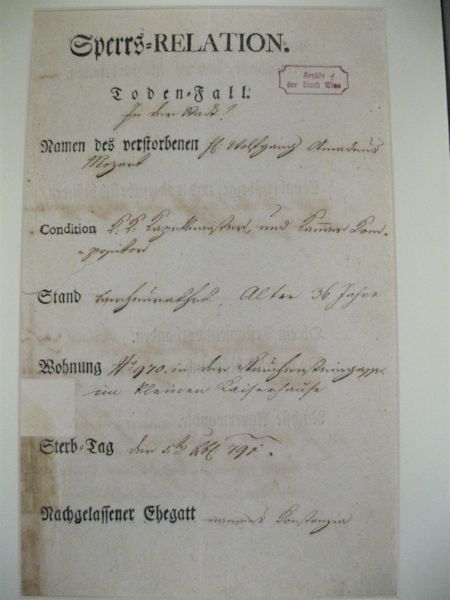 Sperrs=RELATION.
Archiv
der Stadt Wien
Toden=Fall.
In der Stadt
Namen des verstorbenen H. Wolfgang Amadeus
Mozart
Condition K. K. Kapellmeister, und Kammer Com-
positor
Stand verheurathet Alter 36 Jahre
Wohnung No 970. in der Rauhensteingasse
im kleinen Kaiserhause
Sterb=Tag den 5. Xbr. 791.
Nachgelassener Ehegatt Constanzia